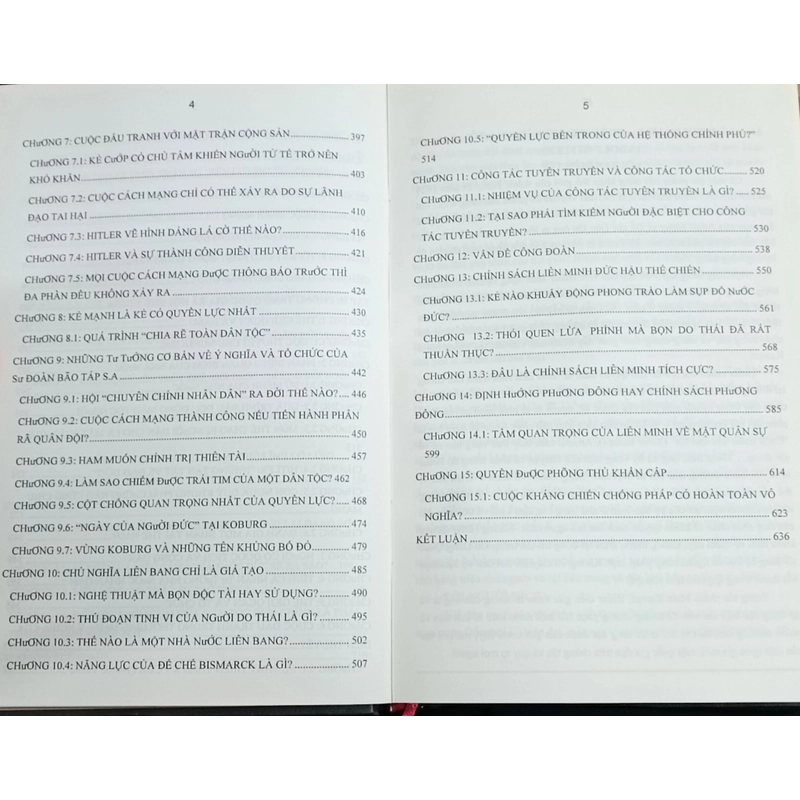 4
CHƯƠNG 7: CUỘC ĐẤU TRANH VỚI MẶT TRẬN CỘNG SẢN ........ 397
CHƯƠNG 7.1: KẺ CƯỚP CÓ CHỦ TÂM KHIẾN NGƯỜI TỬ TẾ TRỞ NÊN
KHÓ KHĂN ........ 403
CHƯƠNG 7.2: CUỘC CÁCH MẠNG CHỈ CÓ THỂ XẢY RA DO SỰ LÃNH
ĐẠO TAI HẠI ........ 410
CHƯƠNG 7.3: HITLER VẼ HÌNH DÁNG LÁ CỜ THẾ NÀO? ........ 416
CHƯƠNG 7.4: HITLER VÀ SỰ THÀNH CÔNG DIỄN THUYẾT ........ 421
CHƯƠNG 7.5: MỌI CUỘC CÁCH MẠNG ĐƯỢC THÔNG BÁO TRƯỚC THÌ
ĐA PHẦN ĐỀU KHÔNG XẢY RA ........ 424
CHƯƠNG 8: KẺ MẠNH LÀ KẺ CÓ QUYỀN LỰC NHẤT ........ 430
CHƯƠNG 8.1: QUÁ TRÌNH “CHIA RẼ TOÀN DÂN TỘC” ........ 435
CHƯƠNG 9: NHỮNG TƯ TƯỞNG CƠ BẢN VỀ Ý NGHĨA VÀ TỔ CHỨC CỦA
SƯ ĐOÀN BÃO TÁP S.A ........ 442
CHƯƠNG 9.1: HỘI “CHUYÊN CHÍNH NHÂN DÂN” RA ĐỜI THẾ NÀO? .... 446
CHƯƠNG 9.2: CUỘC CÁCH MẠNG THÀNH CÔNG NẾU TIẾN HÀNH PHÂN
RÃ QUÂN ĐỘI? ........ 450
CHƯƠNG 9.3: HAM MUỐN CHÍNH TRỊ THIÊN TÀI ........ 457
CHƯƠNG 9.4: LÀM SAO CHIẾM ĐƯỢC TRÁI TIM CỦA MỘT DÂN TỘC? 462
CHƯƠNG 9.5: CỘT CHỐNG QUAN TRỌNG NHẤT CỦA QUYỀN LỰC? ..... 468
CHƯƠNG 9.6: “NGÀY CỦA NGƯỜI ĐỨC” TẠI KOBURG ........ 474
CHƯƠNG 9.7: VÙNG KOBURG VÀ NHỮNG TÊN KHỦNG BỐ ĐỎ ........ 479
CHƯƠNG 10: CHỦ NGHĨA LIÊN BANG CHỈ LÀ GIẢ TẠO ........ 485
CHƯƠNG 10.1: NGHỆ THUẬT MÀ BỌN ĐỘC TÀI HAY SỬ DỤNG? ........ 490
CHƯƠNG 10.2: THỦ ĐOẠN TINH VI CỦA NGƯỜI DO THÁI LÀ GÌ? ........ 495
CHƯƠNG 10.3: THẾ NÀO LÀ MỘT NHÀ NƯỚC LIÊN BANG? ........ 502
CHƯƠNG 10.4: NĂNG LỰC CỦA ĐẾ CHẾ BISMARCK LÀ GÌ? ........ 507
5
CHƯƠNG 10.5: “QUYỀN LỰC BÊN TRONG CỦA HỆ THỐNG CHÍNH PHỦ?”
514
CHƯƠNG 11: CÔNG TÁC TUYÊN TRUYỀN VÀ CÔNG TÁC TỔ CHỨC ........ 520
CHƯƠNG 11.1: NHIỆM VỤ CỦA CÔNG TÁC TUYÊN TRUYỀN LÀ GÌ? ..... 525
CHƯƠNG 11.2: TẠI SAO PHẢI TÌM KIẾM NGƯỜI ĐẶC BIỆT CHO CÔNG
TÁC TUYÊN TRUYỀN? ........ 530
CHƯƠNG 12: VẤN ĐỀ CÔNG ĐOÀN ........ 538
CHƯƠNG 13: CHÍNH SÁCH LIÊN MINH ĐỨC HẬU THẾ CHIẾN ........ 550
CHƯƠNG 13.1: KẺ NÀO KHUẤY ĐỘNG PHONG TRÀO LÀM SỤP ĐỔ NƯỚC
ĐỨC? ........ 561
CHƯƠNG 13.2: THÓI QUEN LỪA PHỈNH MÀ BỌN DO THÁI ĐÃ RẤT
THUẦN THỤC? ........ 568
CHƯƠNG 13.3: ĐÂU LÀ CHÍNH SÁCH LIÊN MINH TÍCH CỰC? ........ 575
CHƯƠNG 14: ĐỊNH HƯỚNG PHƯƠNG ĐÔNG HAY CHÍNH SÁCH PHƯƠNG
ĐÔNG ........ 585
CHƯƠNG 14.1: TẦM QUAN TRỌNG CỦA LIÊN MINH VỀ MẶT QUÂN SỰ
599
CHƯƠNG 15: QUYỀN ĐƯỢC PHÒNG THỦ KHẨN CẤP ........ 614
CHƯƠNG 15.1: CUỘC KHÁNG CHIẾN CHỐNG PHÁP CÓ HOÀN TOÀN VÔ
NGHĨA? ........ 623
KẾT LUẬN ........ 636